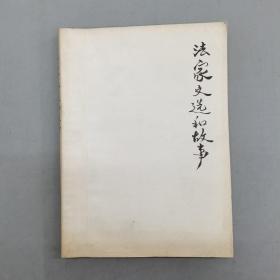 法家文选和故事